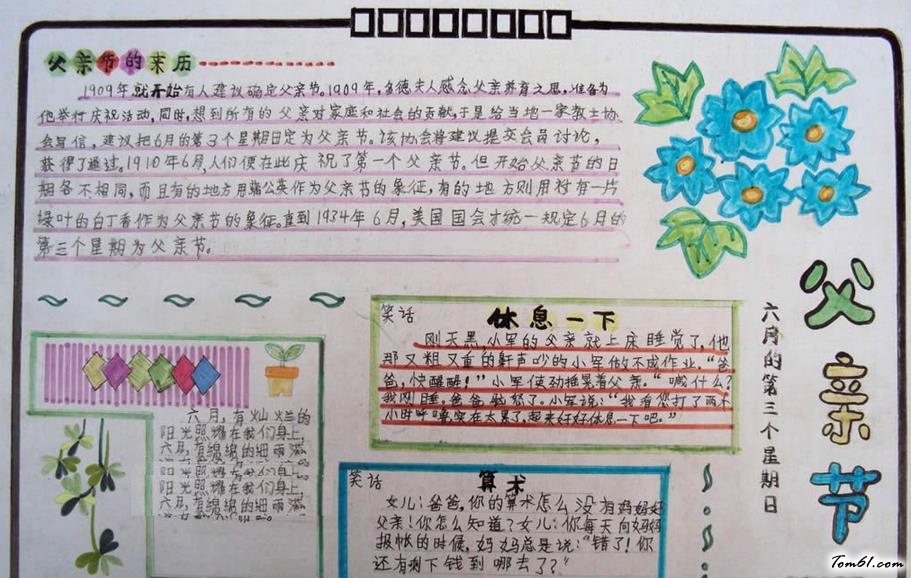 父亲节的来历
1909年就开始有人建议确定父亲节。1909年,多德夫人感念父亲养育之恩,准备为
他举行庆祝活动,同时,想到所有的父亲对家庭和社会的贡献,于是给当地一家教士协
会写信,建议把6月的第3个星期日定为父亲节。该协会将建议提交会员讨论,
获得了通过。1910年6月,人们便在此庆祝了第一个父亲节。但开始父亲节的日
期各不相同,而且有的地方用蒲公英作为父亲节的象征,有的地方则用衬有一片
绿叶的白丁香作为父亲节的象征。直到1934年6月,美国国会才统一规定6月的
第三个星期为父亲节。
父亲节
六月的第三个星期日
笑话
休息一下
刚天黑,小军的父亲就上床睡觉了,他
那又粗又重的鼾声吵的小军做不成作业。“爸
爸,快醒醒!”小军使劲摇晃着父亲。“喊什么?
我刚睡。爸爸勃怒了。小军说:“我看您打了两个
小时呼噜实在太累了,起来好好休息一下吧。”
六月,有灿烂的
阳光照耀在我们身上,
六月,有绵绵的细雨滋
阳光照耀在我们身上,
六月,有绵绵的细雨滋
笑话
算术
女儿:爸爸,你的算术怎么没有妈妈好
父亲!你怎么知道?女儿:你每天向妈妈
报帐的时候,妈妈总是说:“错了!你
还有剩下钱到哪去了?”
Tom61.com